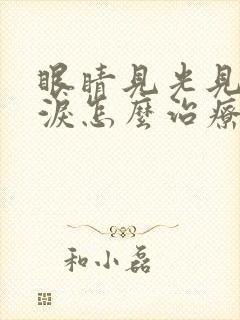 眼睛見光見
淚怎麼治療
和小磊